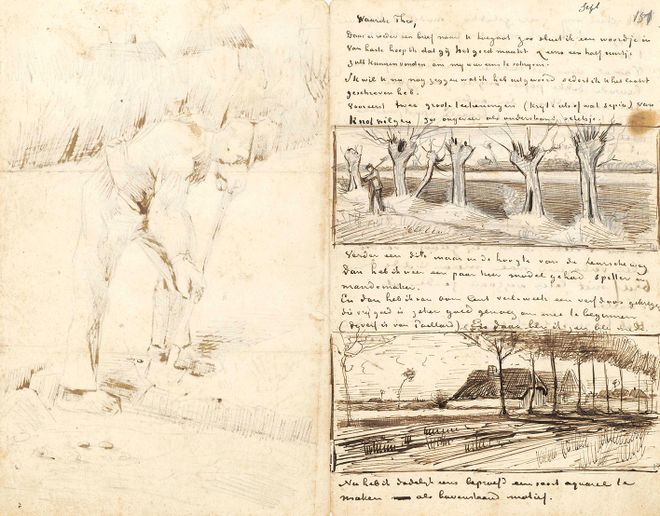 Sept
Waarde Theo,
Daar er weder een brief naar U toegaat zoo sluit ik een woordje in
Van harte hoop ik dat gij het goed maakt & eens een half uurtje
zult kunnen vinden om mij weer eens te schrijven.
Ik wil U nu nog zeggen wat ik heb uitgevoerd sedert ik U het laatst
geschreven heb.
Vooreerst twee groote teekeningen (krijt & iets of wat sepia) van
Knotwilgen zoo ongeveer als onderstaand schetsje.
Verder een dito maar in de hoogte van de Leurscheweg
Dan heb ik weer een paar keer model gehad spitter en
mandemaker.
En dan heb ik van oom Cent verl. week een verfdoos gekregen
die vrij goed is zeker goed genoeg om mee te beginnen
(de verf is van Paillard) En daar ben ik zeer blij mede
Nu heb ik dadelijk eens beproefd een soort aquarel te
maken — als bovenstaand motief.